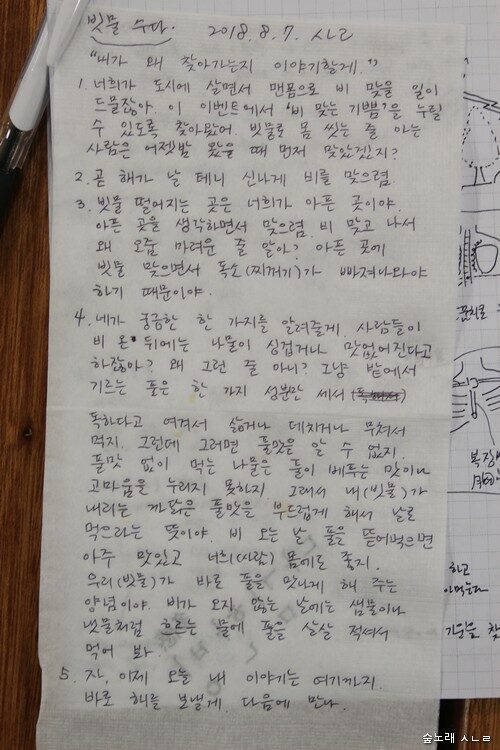 빗물 수다. 2018.8.7. ㅅㄴㄹ
"내가 왜 찾아가는지 이야기할게."
1. 너희가 도시에 살면서 맨몸으로 비 맞을 일이
드물잖아. 이 이벤트에서 '비 맞는 기쁨'을 누릴
수 있도록 찾아왔어. 빗물로 몸 씻는 줄 아는
사람은 어젯밤 왔을 때 먼저 맞았겠지?
2. 곧 해가 날 테니 신나게 비를 맞으렴.
3. 빗물 떨어지는 곳은 너희가 아픈 곳이야.
아픈 곳을 생각하면서 맞으렴. 비 맞고 나서
왜 오줌 마려운 줄 알아? 아픈 곳에
빗물 맞으면서 독소(찌꺼기)가 빠져나와야
하기 때문이야.
4. 네가 궁금한 한 가지를 알려줄게. 사람들이
비 온 뒤에는 나물이 싱겁거나 맛없어진다고
하잖아? 왜 그런 줄 아니? 그냥 밭에서
기르는 풀은 한 가지 성분만 세서
독하다고 여겨서 삶거나 데치거나 무쳐서
먹지. 그런데 그러면 풀맛은 알 수 없지.
풀맛 없이 먹는 나물은 풀이 베푸는 맛이나
고마움을 누리지 못하지. 그래서 내(빗물)가
내리는 까닭은 풀맛을 부드럽게 해서 날로
먹으라는 뜻이야. 비 오는 날 풀을 뜯어먹으면
아주 맛있고 너희(사람) 몸에도 좋지.
우리(빗물)가 바로 풀을 맛나게 해 주는
양념이야. 비가 오지 않는 날에는 샘물이나
냇물처럼 흐르는 물에 풀을 살살 적셔서
먹어 봐.
5. 자, 이제 오늘 내 이야기는 여기까지.
바로 해를 보낼게. 다음에 만나.
하고
숲노래 ㅅㄴㄹ